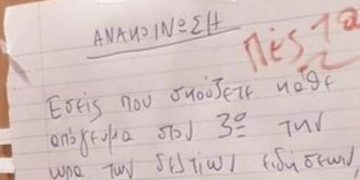 ΑΝΑΚΟΙΝΩΣΗ
Πές
Εσείς που σκούζετε κάθε
απόγευμα στον 3º την
ώρα των δελτίων ειδήσεων,